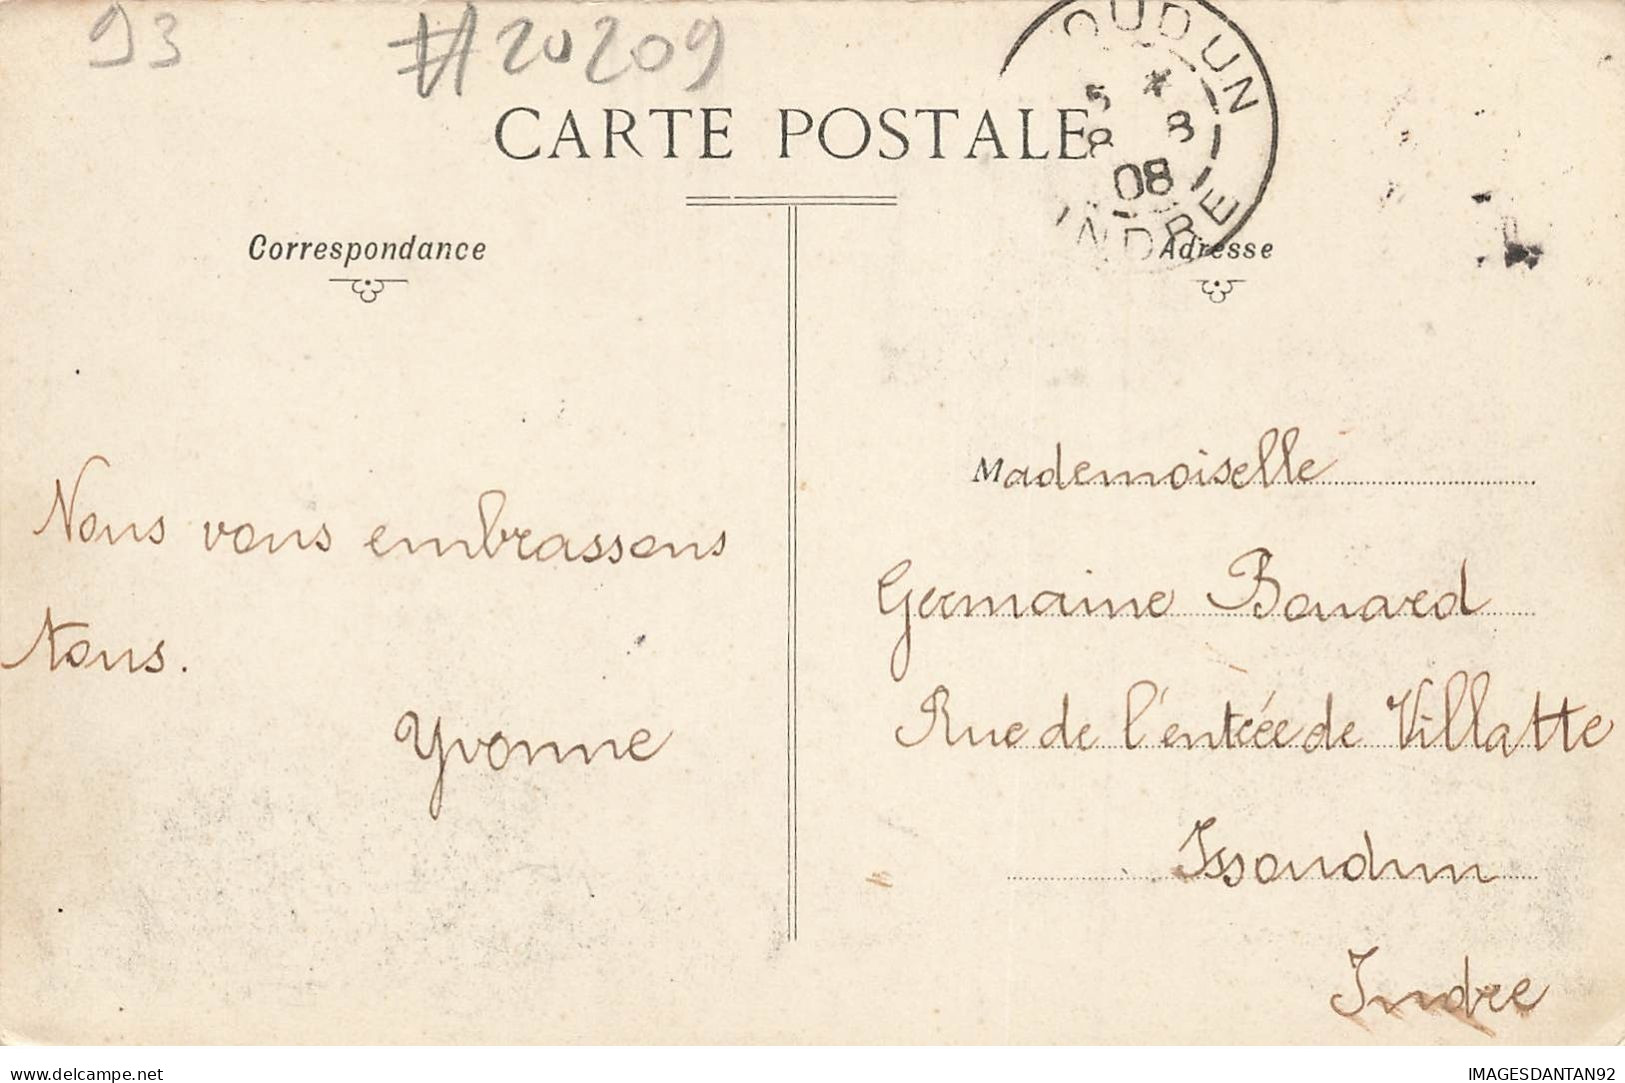 93
#20209
OUDUN
5 *
8 8
08
INDRE
CARTE POSTALE
Correspondance
Adresse
Nous vous embrassons
tous.
Yvonne
Mademoiselle
Germaine Bonard
Rue de l'entrée de Villatte
Issoudun
Indre
www.delcampe.net
IMAGESDANTAN92